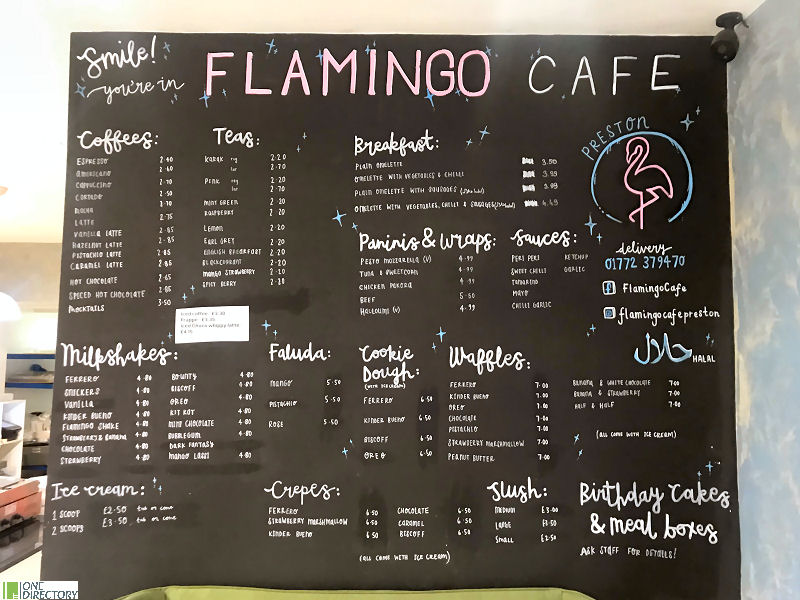 Smile!
you're in
FLAMINGO CAFE
PRESTON
Coffees:
ESPRESSO 2.40
AMERICANO 2.60
CAPPUCCINO 2.70
CORTADO 2.50
MOCHA 2.70
LATTE 2.75
VANILLA LATTE 2.85
HAZELNUT LATTE 2.85
PISTACHIO LATTE 2.85
CARAMEL LATTE 2.85
HOT CHOCOLATE 2.65
SPICED HOT CHOCOLATE 2.85
MOCKTAILS 3.50
Teas:
KARAK reg 2.20
lar 2.70
PINK reg 2.20
lar 2.70
MINT GREEN 2.20
RASPBERRY 2.20
LEMON 2.20
EARL GREY 2.20
ENGLISH BREAKFAST 2.20
BLACKCURRANT 2.20
MANGO STRAWBERRY 2.20
SPICY BERRY 2.20
Iced coffee £3.30
Frappe £3.35
Breakfast:
PLAIN OMELETTE 3.50
OMELETTE WITH VEGETABLES & CHILLI 3.99
PLAIN OMELETTE WITH SAUSAGES 3.99
OMELETTE WITH VEGETABLES, CHILLI & SAUSAGES 4.49
Paninis & Wraps:
PESTO MOZZARELLA (V) 4.99
TUNA & SWEETCORN 4.99
CHICKEN PAKORA 4.99
BEEF 5.50
HALLOUMI (V) 4.99
Sauces:
PERI PERI KETCHUP
SWEET CHILLI GARLIC
TAMARIND
MAYO
CHILLI GARLIC
delivery
01772 379470
FlamingoCafe
flamingocafepreston
حلال HALAL
Milkshakes:
FERRERO 4.80
SNICKERS 4.80
VANILLA 4.80
KINDER BUENO 4.80
FLAMINGO SHAKE 4.80
STRAWBERRY & BANANA 4.80
CHOCOLATE 4.80
STRAWBERRY 4.80
BOUNTY 4.80
BISCOFF 4.80
OREO 4.80
KIT KAT 4.80
MINT CHOCOLATE 4.80
BUBBLEGUM 4.80
DARK FANTASY 4.80
MANGO LASSI 4.80
Faluda:
MANGO 5.50
PISTACHIO 5.50
ROSE 5.50
Cookie
Dough:
(WITH ICE CREAM)
FERRERO 6.50
KINDER BUENO 6.50
BISCOFF 6.50
OREO 6.50
Waffles:
FERRERO 7.00
KINDER BUENO 7.00
OREO 7.00
CHOCOLATE 7.00
PISTACHIO 7.00
STRAWBERRY MARSHMALLOW 7.00
PEANUT BUTTER 7.00
BANANA & WHITE CHOCOLATE 7.00
BANANA & STRAWBERRY 7.00
HALF & HALF 7.00
(ALL COME WITH ICE CREAM)
Ice cream:
1 SCOOP £2.50 tub or cone
2 SCOOPS £3.50 tub or cone
Crepes:
FERRERO 6.50
STRAWBERRY MARSHMALLOW 6.50
KINDER BUENO 6.50
CHOCOLATE 6.50
CARAMEL 6.50
BISCOFF 6.50
(ALL COME WITH ICE CREAM)
Slush:
MEDIUM £3.00
LARGE £3.50
SMALL £2.50
Birthday Cakes
& meal boxes
ASK STAFF FOR DETAILS!
ONE
DIRECTORY